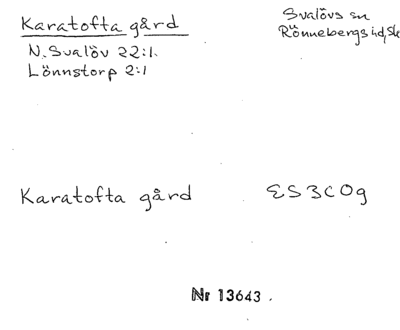 Karatofta gård
N. Svalöv 22:1.
Lönnstorp 2:1
Svalövs sn
Rönnebergs hd, Sk
Karatofta gård
ES3C0g
Nr 13643.